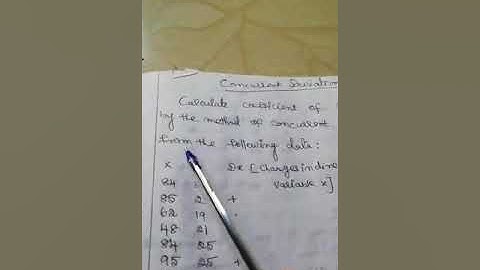 Concurrent Deviation
Calculate coefficient of
by the method of concurrent
from the following data:
x Dx [Changes in dire
84 variable x]
85 2 +
62 19 .
48 21
84 25
95 25 +